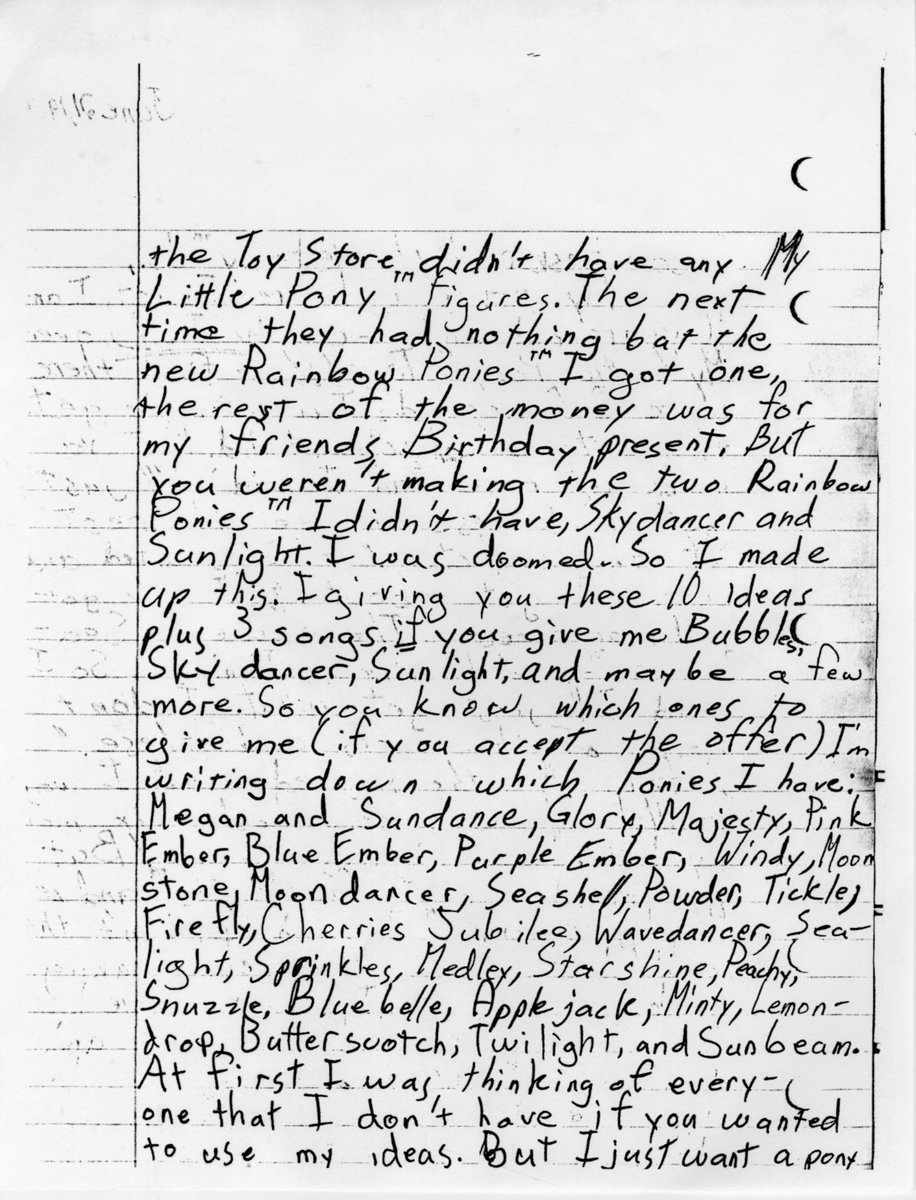 June 24, 19
the Toy Store didn't have any My
Little Pony ™ figures. The next
time they had nothing but the
new Rainbow Ponies ™ I got one,
the rest of the money was for
my friends Birthday present. But
you weren't making the two Rainbow
Ponies ™ I didn't have, Skydancer and
Sunlight. I was doomed. So I made
up this. I giving you these 10 ideas
plus 3 songs if you give me Bubbles,
Sky dancer, Sunlight, and maybe a few
more. So you know which ones to
give me (if you accept the offer) I'm
writing down which Ponies I have:
Megan and Sundance, Glory, Majesty, Pink
Ember, Blue Ember, Purple Ember, Windy, Moon
stone, Moondancer, Seashell, Powder, Tickle,
Firefly, Cherries Jubilee, Wavedancer, Sea-
light, Sprinkles, Medley, Starshine, Peachy,
Snuzzle, Bluebelle, Applejack, Minty, Lemon-
drop, Butterscotch, Twilight, and Sunbeam.
At first I was thinking of every-
one that I don't have if you wanted
to use my ideas. But I just want a pony